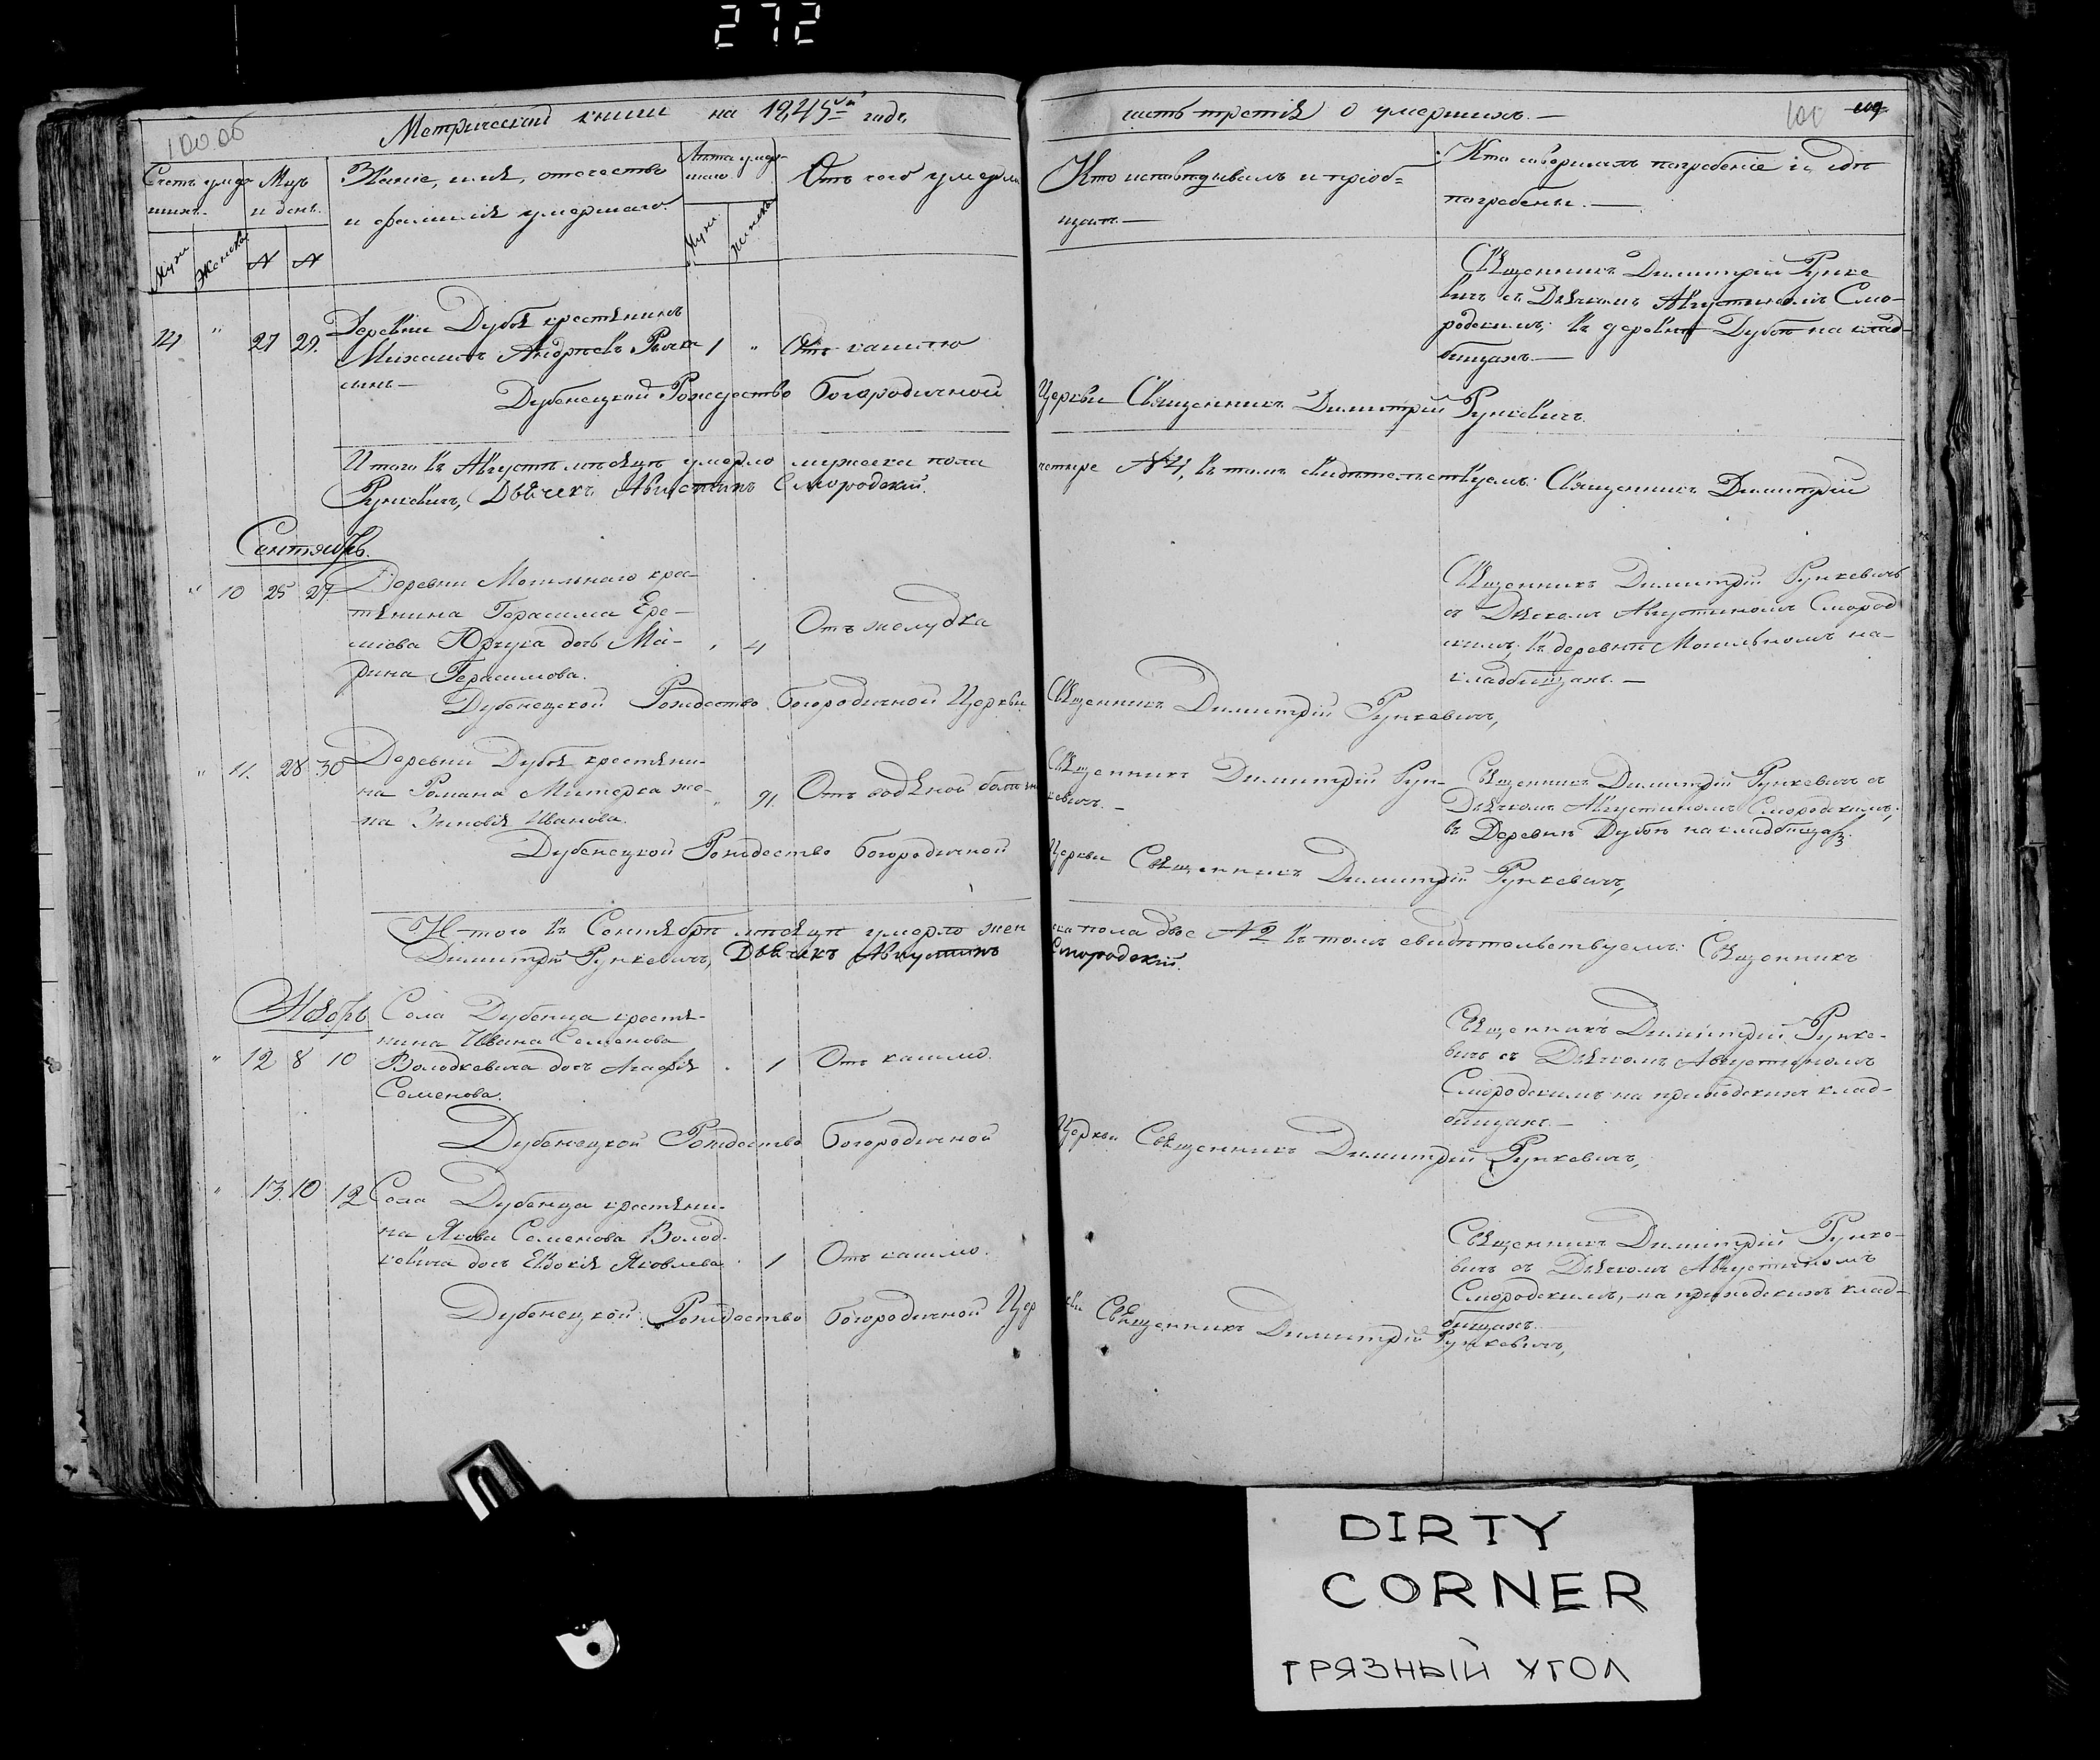 272
Метрической книги на 1845й годъ
часть третія о умершихъ. —
Счетъ умер-
шихъ.
Мцъ
и день.
Званіе, имя, отечество
и фамилія умершаго.
Лѣта умер-
шаго
Отъ чего умерли
Кто исповѣдывалъ и пріоб-
щалъ —
Кто совершалъ погребеніе и гдѣ
погребены. —
Муж
Женска
Муж
Женска
" 27 29.
Деревни Дубоя крестьянинъ
Михаилъ Андреевъ
сынъ —
1 "
Отъ кашлю
Священникъ Димитрій Рунке
вичъ съ Дьячкомъ Августиномъ Смо-
родскимъ; въ деревнѣ Дубоѣ на клад-
бищахъ. —
Дубенецкой Рождество Богородичной Церкви Священникъ Димитрій Рункевичъ.
Итого въ Августѣ мѣсяцѣ умерло мужеска пола четыре №4, въ томъ свидѣтельствуемъ: Священникъ Димитрій
Рункевичъ, Дьячекъ Августинъ Смородскій.
Сентябрь.
" 10 25 27
Деревни Могильнаго крес-
тянина Герасима Ере-
миева Юрчука дочь Ма-
рина Герасимова.
4
Отъ желудка
Священникъ Димитрій Рункевичъ
съ Дьячкомъ Августиномъ Смород
скимъ; въ деревнѣ Могильномъ на-
кладбищахъ. —
Дубенецкой Рождество Богородичной Церкви Священникъ Димитрій Рункевичъ,
" 11. 28 30
Деревни Дубоя крестяни-
на Романа Митерка же-
на Зиновія Иванова.
91.
Отъ водяной болезни
Священникъ Димитрій Рун-
кевичъ. —
Священникъ Димитрій Рункевичъ съ
Дьячкомъ Августиномъ Смородскимъ;
въ Деревнѣ Дубоѣ на кладбищах.
Дубенецкой Рождество Богородичной Церкви Священникъ Димитрій Рункевичъ,
И того въ Сентябрѣ мѣсяцѣ умерло женска пола двѣ №2 въ томъ свидѣтельствуемъ: Священникъ
Димитрій Рункевичъ, Дьячекъ Августинъ Смородскій.
Ноябрь
" 12 8 10
Села Дубенца крестя-
нина Ивана Семенова
Володкевича дочь Агафія
Семенова.
1
Отъ кашлю.
Священникъ Димитрій Рунке-
вичъ съ Дьячкомъ Августиномъ
Смородскимъ на приходскихъ клад-
бищахъ. —
Дубенецкой Рождество Богородичной Церкви Священникъ Димитрій Рункевичъ,
" 13. 10 12
Села Дубенца крестяни-
на Якова Семенова Волод-
кевича дочь Евдокія Яковлева
1
Отъ кашлю.
Священникъ Димитрій Рунке-
вичъ съ Дьячкомъ Августиномъ
Смородскимъ, на приходскихъ клад-
бищахъ.
Дубенецкой Рождество Богородичной Церкви Священникъ Димитрій Рункевичъ,
DIRTY
CORNER
ГРЯЗНЫЙ УГОЛ